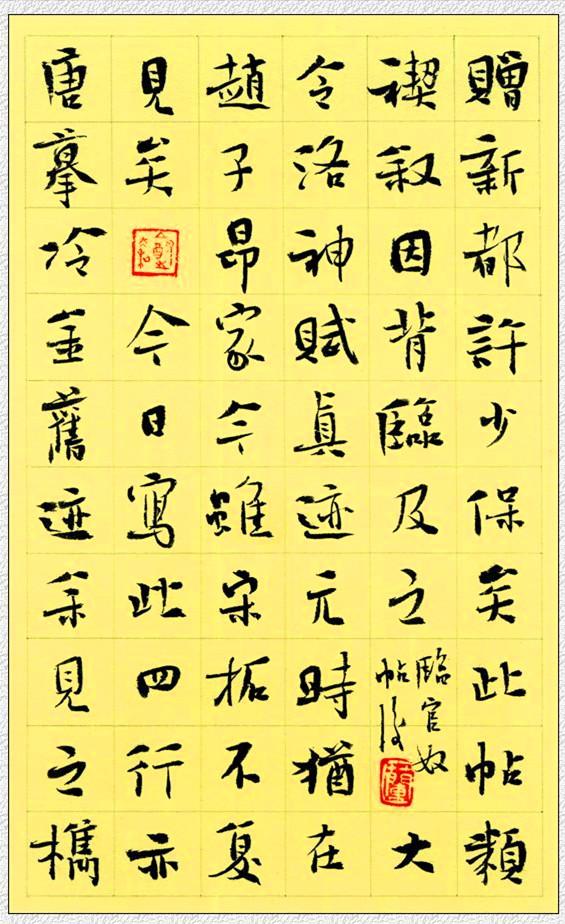 贈新都許少保矣此帖類
禊叙因背臨及之
臨官奴
帖後
大
令洛神賦眞迹元時猶在
趙子昂家今雖宋拓不复
見矣
今日寫此四行亦
唐摹冷金舊迹余見之檇